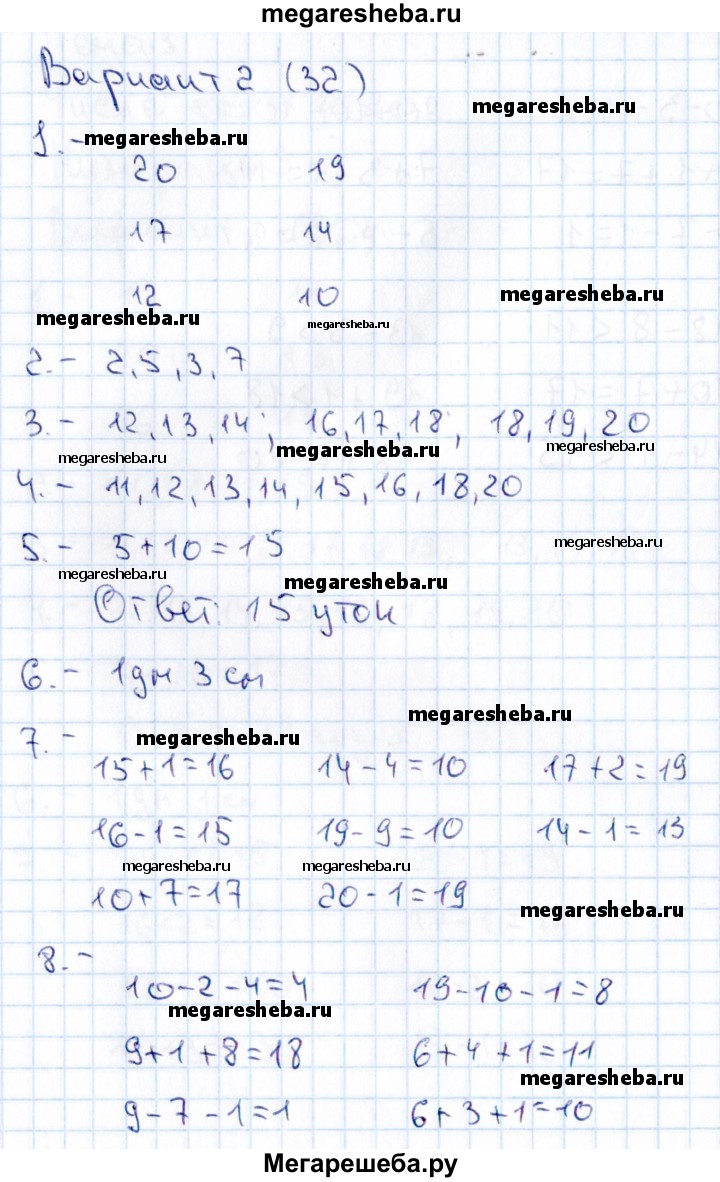 megaresheba.ru
Вариант 2 (32)
megaresheba.ru
1.- megaresheba.ru
20 19
17 14
12 10 megaresheba.ru
megaresheba.ru megaresheba.ru
2.- 2,5,3,7
3.- 12,13,14; 16,17,18; 18,19,20
megaresheba.ru megaresheba.ru megaresheba.ru
4.- 11,12,13,14,15,16,18,20
5.- 5+10=15 megaresheba.ru
megaresheba.ru megaresheba.ru
Ответ: 15 уток
6.- 1дм 3см
megaresheba.ru
7.- megaresheba.ru
15+1=16 14-4=10 17+2=19
16-1=15 19-9=10 14-1=13
megaresheba.ru megaresheba.ru
10+7=17 20-1=19 megaresheba.ru
8.-
10-2-4=4 19-10-1=8
megaresheba.ru
9+1+8=18 6+4+1=11
megaresheba.ru
9-7-1=1 6+3+1=10
Мегарешеба.ру